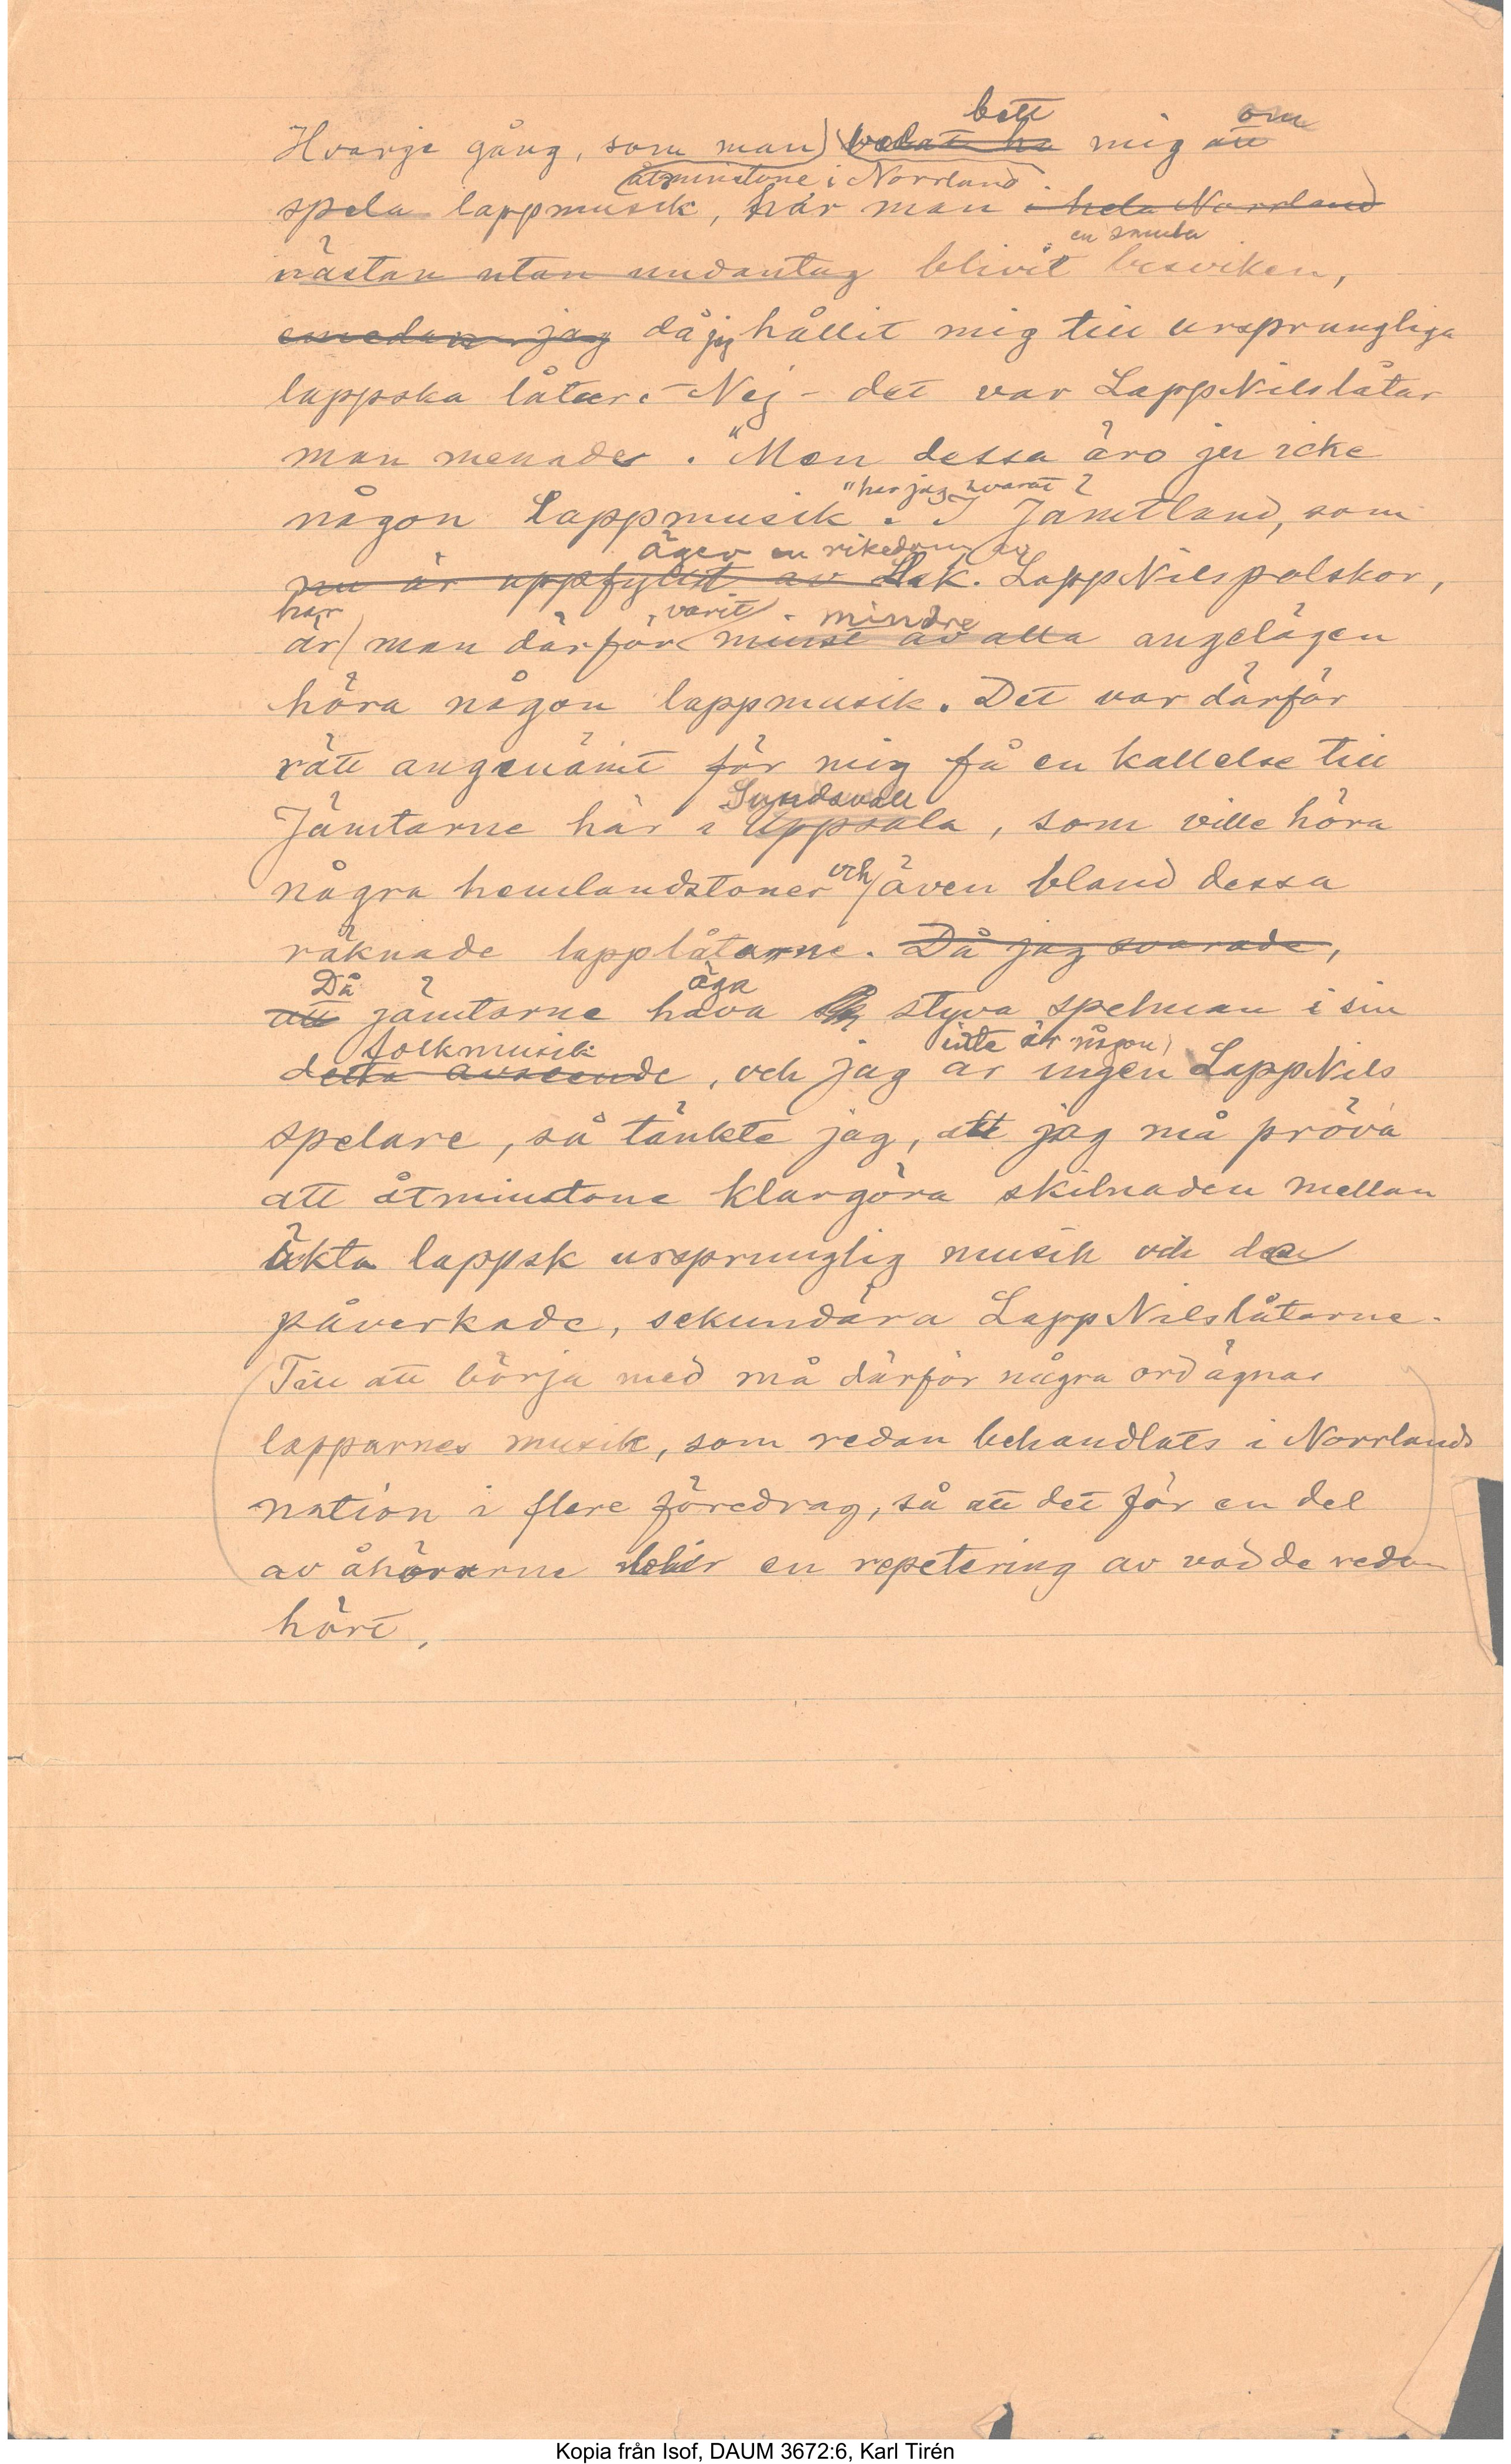 bett om
Hvarje gång, som man velat ha mig att
åtminstone i Norrland
spela lappmusik, har man i hela Norrland
en smula
nästan utan undantag blivit besviken,
emedan jag då jag hållit mig till ursprungliga
lappska låtar. – Nej – det var LappNilslåtar
man menade. "Men dessa äro ju icke
" har jag svarat
någon Lappmusik. I Jämtland, som
äger en rikedom av
nu är uppfylld av s.k. LappNilspolskor,
har varit mindre
är man därför minst av alla angelägen
höra någon lappmusik. Det var därför
rätt angenämt för mig få en kallelse till
Sundsvall
Jämtarne här i Uppsala, som ville höra
några hemlandstoner och även bland dessa
räknade lapplåtarne. Då jag svarade,
Då äga
att jämtarne hava styva spelman i sin
folkmusik inte är någon
detta avseende, och jag är ingen LappNils
spelare, så tänkte jag, att jag må pröva
att åtminstone klargöra skilnaden mellan
äkta lappsk ursprunglig musik och de
påverkade, sekundära LappNilslåtarne.
Till att börja med må därför några ord ägnas
lapparnes musik, som redan behandlats i Norrlands
nation i flere föredrag, så att det för en del
av åhörarne blir en repetering av vad de redan
hört.
Kopia från Isof, DAUM 3672:6, Karl Tirén